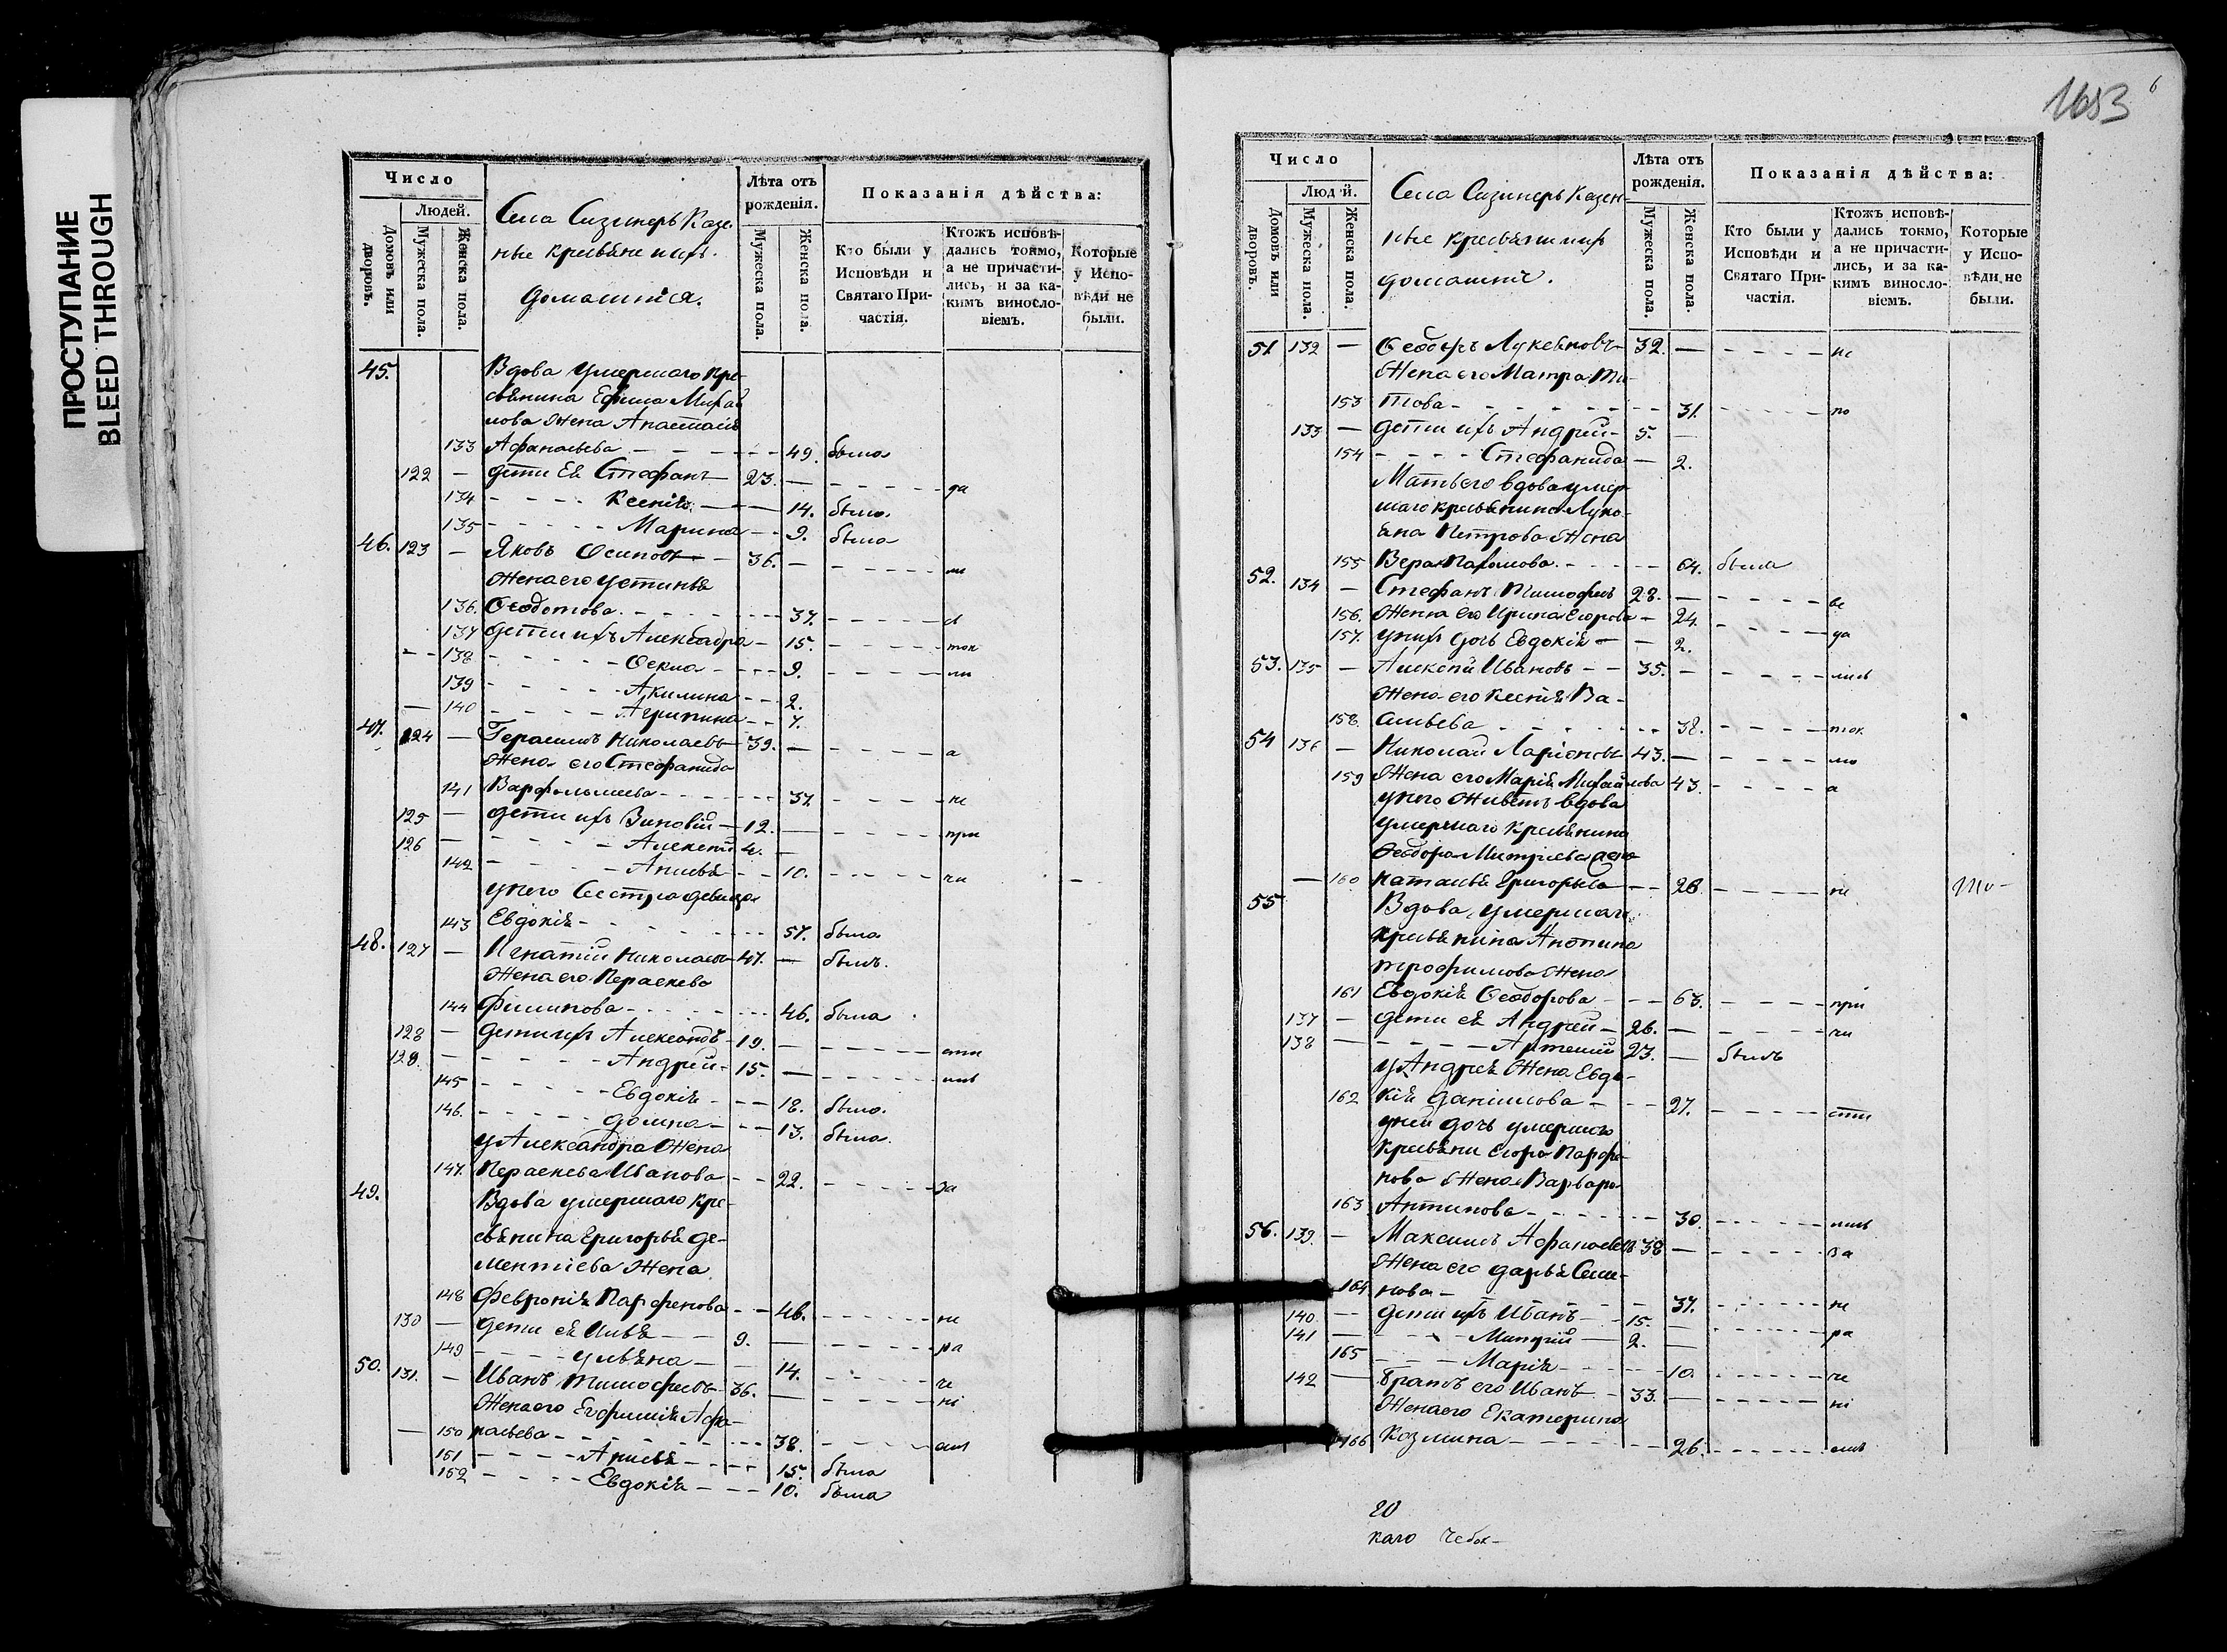 ПРОСТУПАНИЕ
BLEED THROUGH
Число
Людей.
Домовъ или дворовъ.
Мужеска пола.
Женска пола.
Села Сизинерь Казен
ные кресьяне и ихъ
домашнія.
Лѣта отъ рожденія.
Мужеска пола.
Женска пола.
Показанія дѣйства:
Кто были у Исповѣди и Святаго Причастія.
Ктожъ исповѣдались токмо, а не причастились, и за какимъ винословіемъ.
Которые у Исповѣди не были.
45. Вдова умершаго кре-
сьянина Ефима Михай
лова жена Анастасія
133 Афанасьева 49. была
122 — дети Ея Стефанъ 23. — да
134 Ксенія 14. была
135 Марина 9. была
46. 123 — Яковъ Осиповъ 36. —
Жена его Устинья
136. Ѳеодотова 37.
137 дети ихъ Александра 15. ток
138 Ѳекла 9.
139 Акилина 2.
140 Агрипина 7.
47. 124 — Герасимъ Николаевъ 39. — а
Жена его Стефанида
141 Варфоломеева 37. не
125 — дети ихъ Зиновій 12. — при
126 — Алексей 4. —
142 Анисья 10. ча
у него Сестра девица
143 Евдокія 57. была
48. 127 — Игнатій Николаевъ 47. — былъ.
Жена его Параскева
144 Филипова 46. была
128 — дети ихъ Александръ 19. — сти
129. — Андрей 15. — лись
145 Евдокія 18. была
146. Домна 13. была
у Александра Жена
147. Параскева Иванова 22. за
49. Вдова умершаго кре-
сьянина Григорья Де-
ментіева Жена
148 Февронія Парфенова 46. не
130 — дети ея Илья 9. — ра
149 Ульяна 14. че
50. 131. — Иванъ Тимофеевъ 36. — ні
Жена его Евфимія Афа-
150 насьева 38. емъ
151 Анисья 15. была
152 Евдокія 10. была
1653
6
Число
Людей.
Домовъ или дворовъ.
Мужеска пола.
Женска пола.
Села Сизинерь Казен-
ные кресьяне и ихъ
домашніе.
Лѣта отъ рожденія.
Мужеска пола.
Женска пола.
Показанія дѣйства:
Кто были у Исповѣди и Святаго Причастія.
Ктожъ исповѣдались токмо, а не причастились, и за какимъ винословіемъ.
Которые у Исповѣди не были.
51. 132 — Ѳеодоръ Лукьяновъ 32. — ис
Жена его Матрона Ти-
153 това 31. по
133 — дети ихъ Андрей 5. —
154 Стефанида — 2.
Мать его вдова умер
шаго кресьянина Лукь
яна Петрова Жена
155 Вера 64. была
52. 134 — Стефанъ Тимофеевъ 28. — ве
156. Жена его Ирина Егорова — 24. да
157. у них дочь Евдокія — 2.
53. 135 — Алексей Ивановъ 35. — лись
Жена его Ксенія Ва-
158. сильева 38. ток
54 136 — Николай Ларіоновъ 43. — мо
159 Жена его Марія Михайлова 43. а
у него живетъ вдова
умершаго кресьянина
Ѳеодора Митріева
160 Наталья Григорьева 28 не
55 Вдова умершаго
кресьянина Антипа
Трофимова Жена
161 Евдокія Ѳеодорова 63. при
137 — дети ея Андрей 26. — ча
138 — Артемий 23. — былъ
у Андрея Жена Евдо-
162 кія Данилова 27. сти
у ней дочь умершаго
кресьяни Егора Парфе-
нова Жена Варвара
163 Антипова 30. лись
56. 139. — Максимъ Афанасьевъ 38 — за
Жена его Дарья Семе-
164 нова 37. не
140. — дети ихъ Иванъ 15. — ра
141 — Митрий 2. —
165 Марія 10. че
142 — братъ его Иванъ 33. — ні
Жена его Екатерина
166 Козмина 26. емъ
20
каго Чебок-